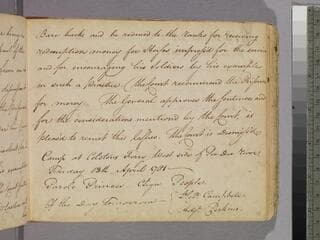 Bare backs and be reduced to the Ranks for receiving
redemption money for Horses impress'd for the army
and for encouraging his Soldiers by his example
in such a practice. The Court recommend the Prisoner
for mercy. The General approves the Sentence and
for the considerations mentioned by the Court is
pleased to remit the lashes. The Court is dissolved
Camp at Colstons Ferry West side of Pe Dee River
Friday 13th April 1781
Parole Duncan C. Sign People
Off the Day tomorrow Campbell
Perkins